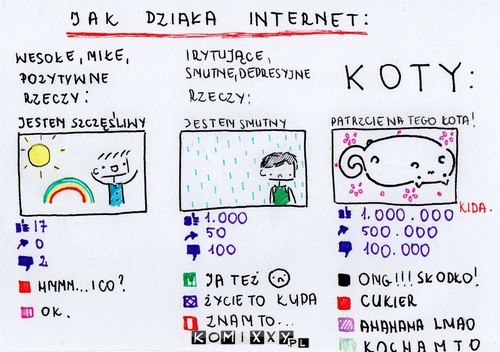 JAK DZIAŁA INTERNET:
WESOŁE, MIŁE,
POZYTYWNE
RZECZY:
JESTEM SZCZĘŚLIWY
17
0
2
HMMM...I CO?
OK.
IRYTUJĄCE,
SMUTNE, DEPRESYJNE
RZECZY:
JESTEM SMUTNY
1.000
50
100
JA TEŻ
ŻYCIE TO KUDA
ZNAM TO...
KOTY:
PATRZCIE NA TEGO KOTA!
KIDA.
1.000.000
500.000
100.000
OMG!!! SŁODKO!
CUKIER
AHAHAHA LMAO
KOCHAM TO
KOMIXXY.PL